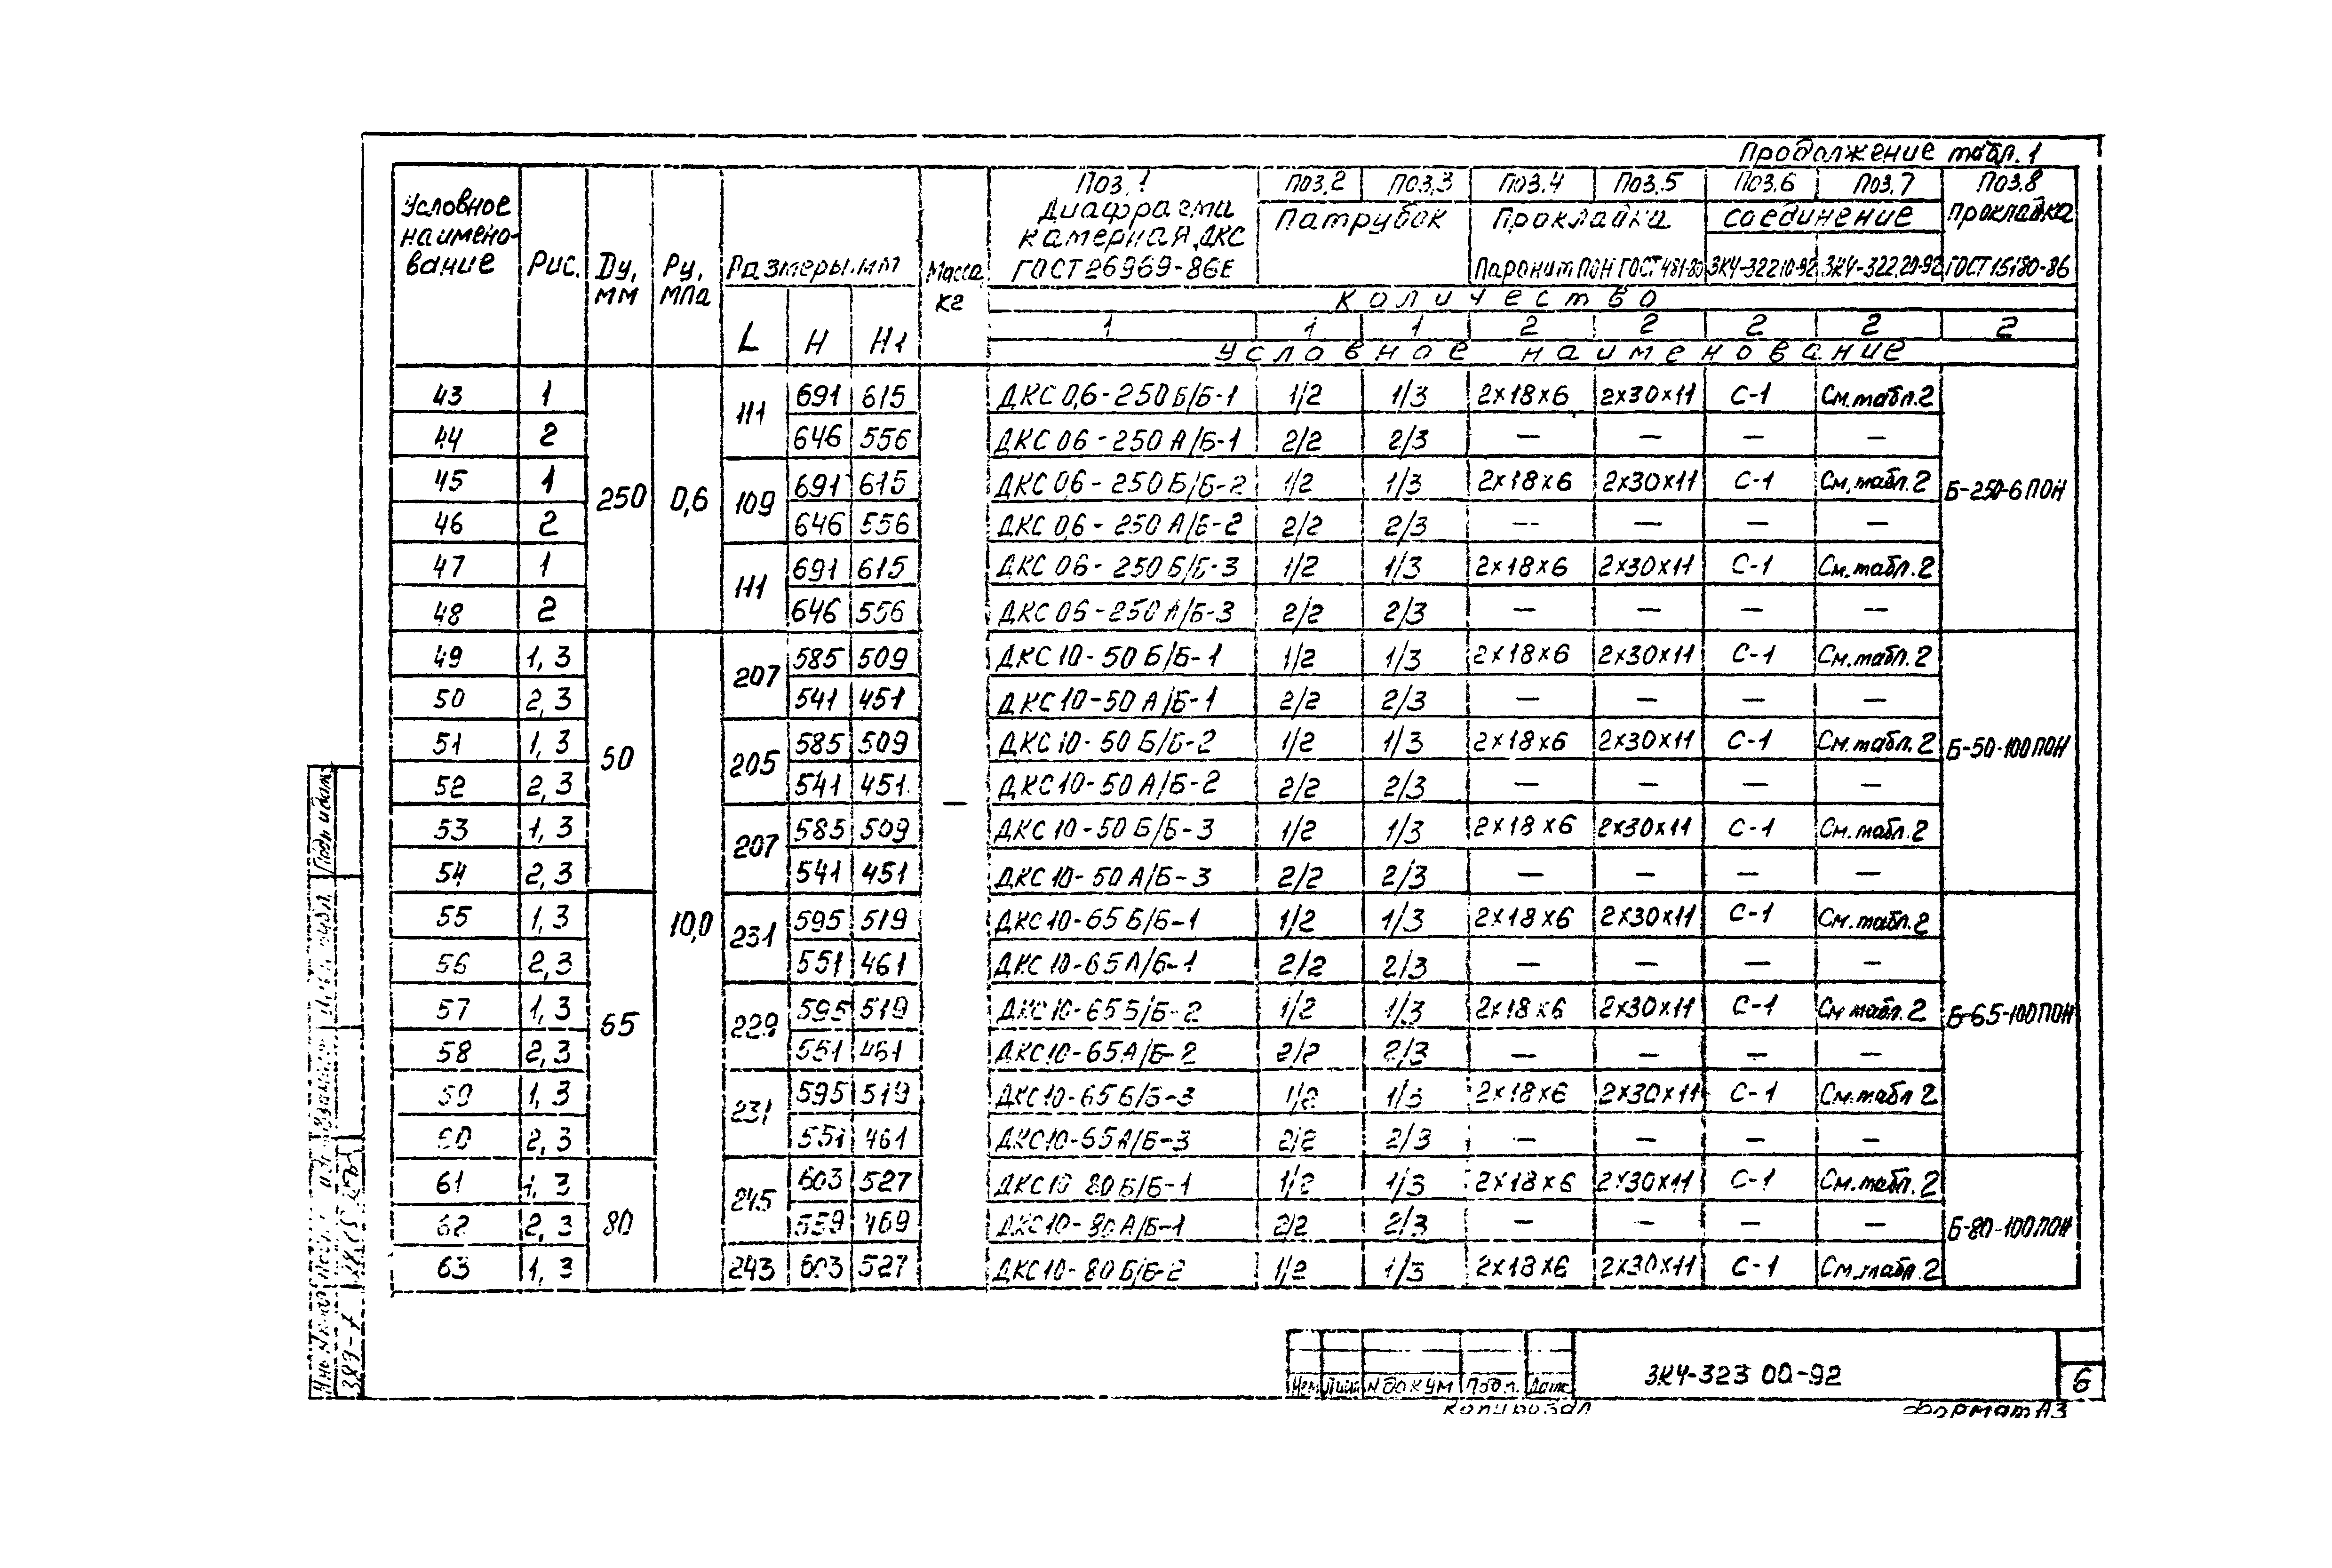 Продолжение табл. 1
Условное наимено-вание Рис. Dу, мм Pу, МПа Размеры, мм Масса, кг Поз. 1 Поз. 2 Поз. 3 Поз. 4 Поз. 5 Поз. 6 Поз. 7 Поз. 8
Диафрагма камерная, ДКС ГОСТ 26969-86Е Патрубок Прокладка Соединение Прокладка
Паронит ПОН ГОСТ 481-80 ЗК4-322.10-92 ЗК4-322.20-92 ГОСТ 15180-86
Количество
L H H1 1 1 1 2 2 2 2 2
Условное наименование
43 1 250 0,6 111 691 615 — ДКС 0,6-250 Б/Б-1 1/2 1/3 2×18×6 2×30×11 С-1 См. табл. 2 Б-250-6 ПОН
44 2 646 556 ДКС 06-250 А/Б-1 2/2 2/3 — — — —
45 1 109 691 615 ДКС 06-250 Б/Б-2 1/2 1/3 2×18×6 2×30×11 С-1 См. табл. 2
46 2 646 556 ДКС 0,6-250 А/Б-2 2/2 2/3 — — — —
47 1 111 691 615 ДКС 06-250 Б/Б-3 1/2 1/3 2×18×6 2×30×11 С-1 См. табл. 2
48 2 646 556 ДКС 06-250 А/Б-3 2/2 2/3 — — — —
49 1, 3 50 10,0 207 585 509 ДКС 10-50 Б/Б-1 1/2 1/3 2×18×6 2×30×11 С-1 См. табл. 2 Б-50-100 ПОН
50 2, 3 541 451 ДКС 10-50 А/Б-1 2/2 2/3 — — — —
51 1, 3 205 585 509 ДКС 10-50 Б/Б-2 1/2 1/3 2×18×6 2×30×11 С-1 См. табл. 2
52 2, 3 541 451 ДКС 10-50 А/Б-2 2/2 2/3 — — — —
53 1, 3 207 585 509 ДКС 10-50 Б/Б-3 1/2 1/3 2×18×6 2×30×11 С-1 См. табл. 2
54 2, 3 541 451 ДКС 10-50 А/Б-3 2/2 2/3 — — — —
55 1, 3 65 231 595 519 ДКС 10-65 Б/Б-1 1/2 1/3 2×18×6 2×30×11 С-1 См. табл. 2 Б-65-100 ПОН
56 2, 3 551 461 ДКС 10-65 А/Б-1 2/2 2/3 — — — —
57 1, 3 229 595 519 ДКС 10-65 Б/Б-2 1/2 1/3 2×18×6 2×30×11 С-1 См табл. 2
58 2, 3 551 461 ДКС 10-65 А/Б-2 2/2 2/3 — — — —
59 1, 3 231 595 519 ДКС 10-65 Б/Б-3 1/2 1/3 2×18×6 2×30×11 С-1 См. табл 2
60 2, 3 551 461 ДКС 10-65 А/Б-3 2/2 2/3 — — — —
61 1, 3 80 245 603 527 ДКС 10 80 Б/Б-1 1/2 1/3 2×18×6 2×30×11 С-1 См. табл. 2 Б-80-100 ПОН
62 2, 3 559 469 ДКС 10-80 А/Б-1 2/2 2/3 — — — —
63 1, 3 243 603 527 ДКС 10-80 Б/Б-2 1/2 1/3 2×18×6 2×30×11 С-1 См. табл. 2
Подп и дата
Изм Лист № докум Подп. Дата
ЗК4-323 00-92
6
Копировал
Формат А3